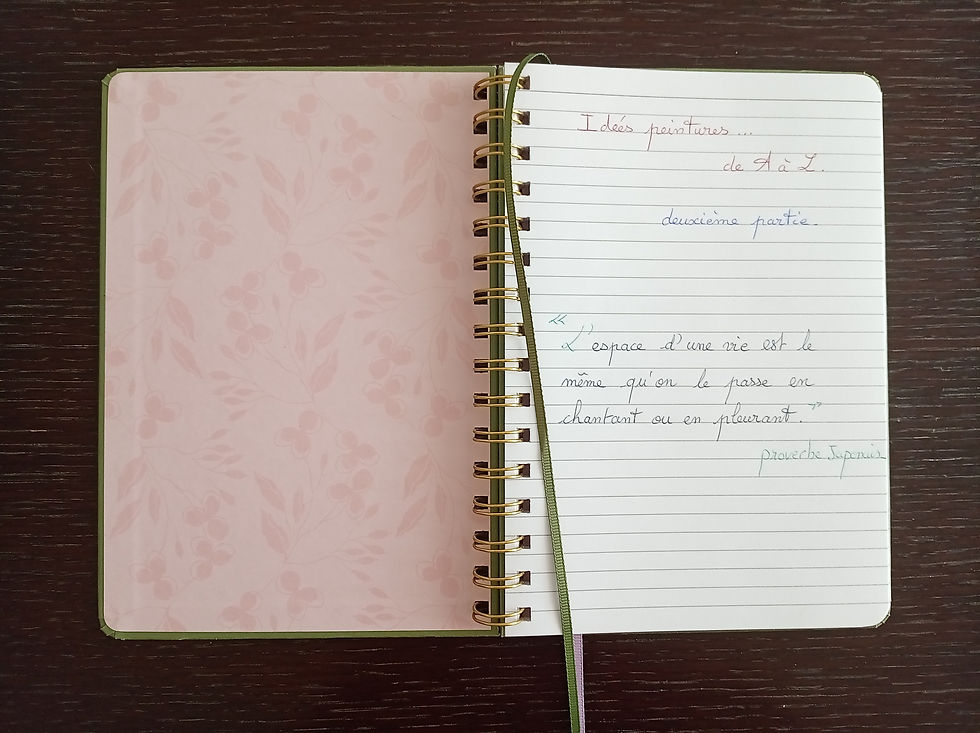 Idées peintures...
de A à Z.
deuxième partie.
«
L'espace d'une vie est le
même qu'on le passe en
chantant ou en pleurant. »
proverbe Japonais